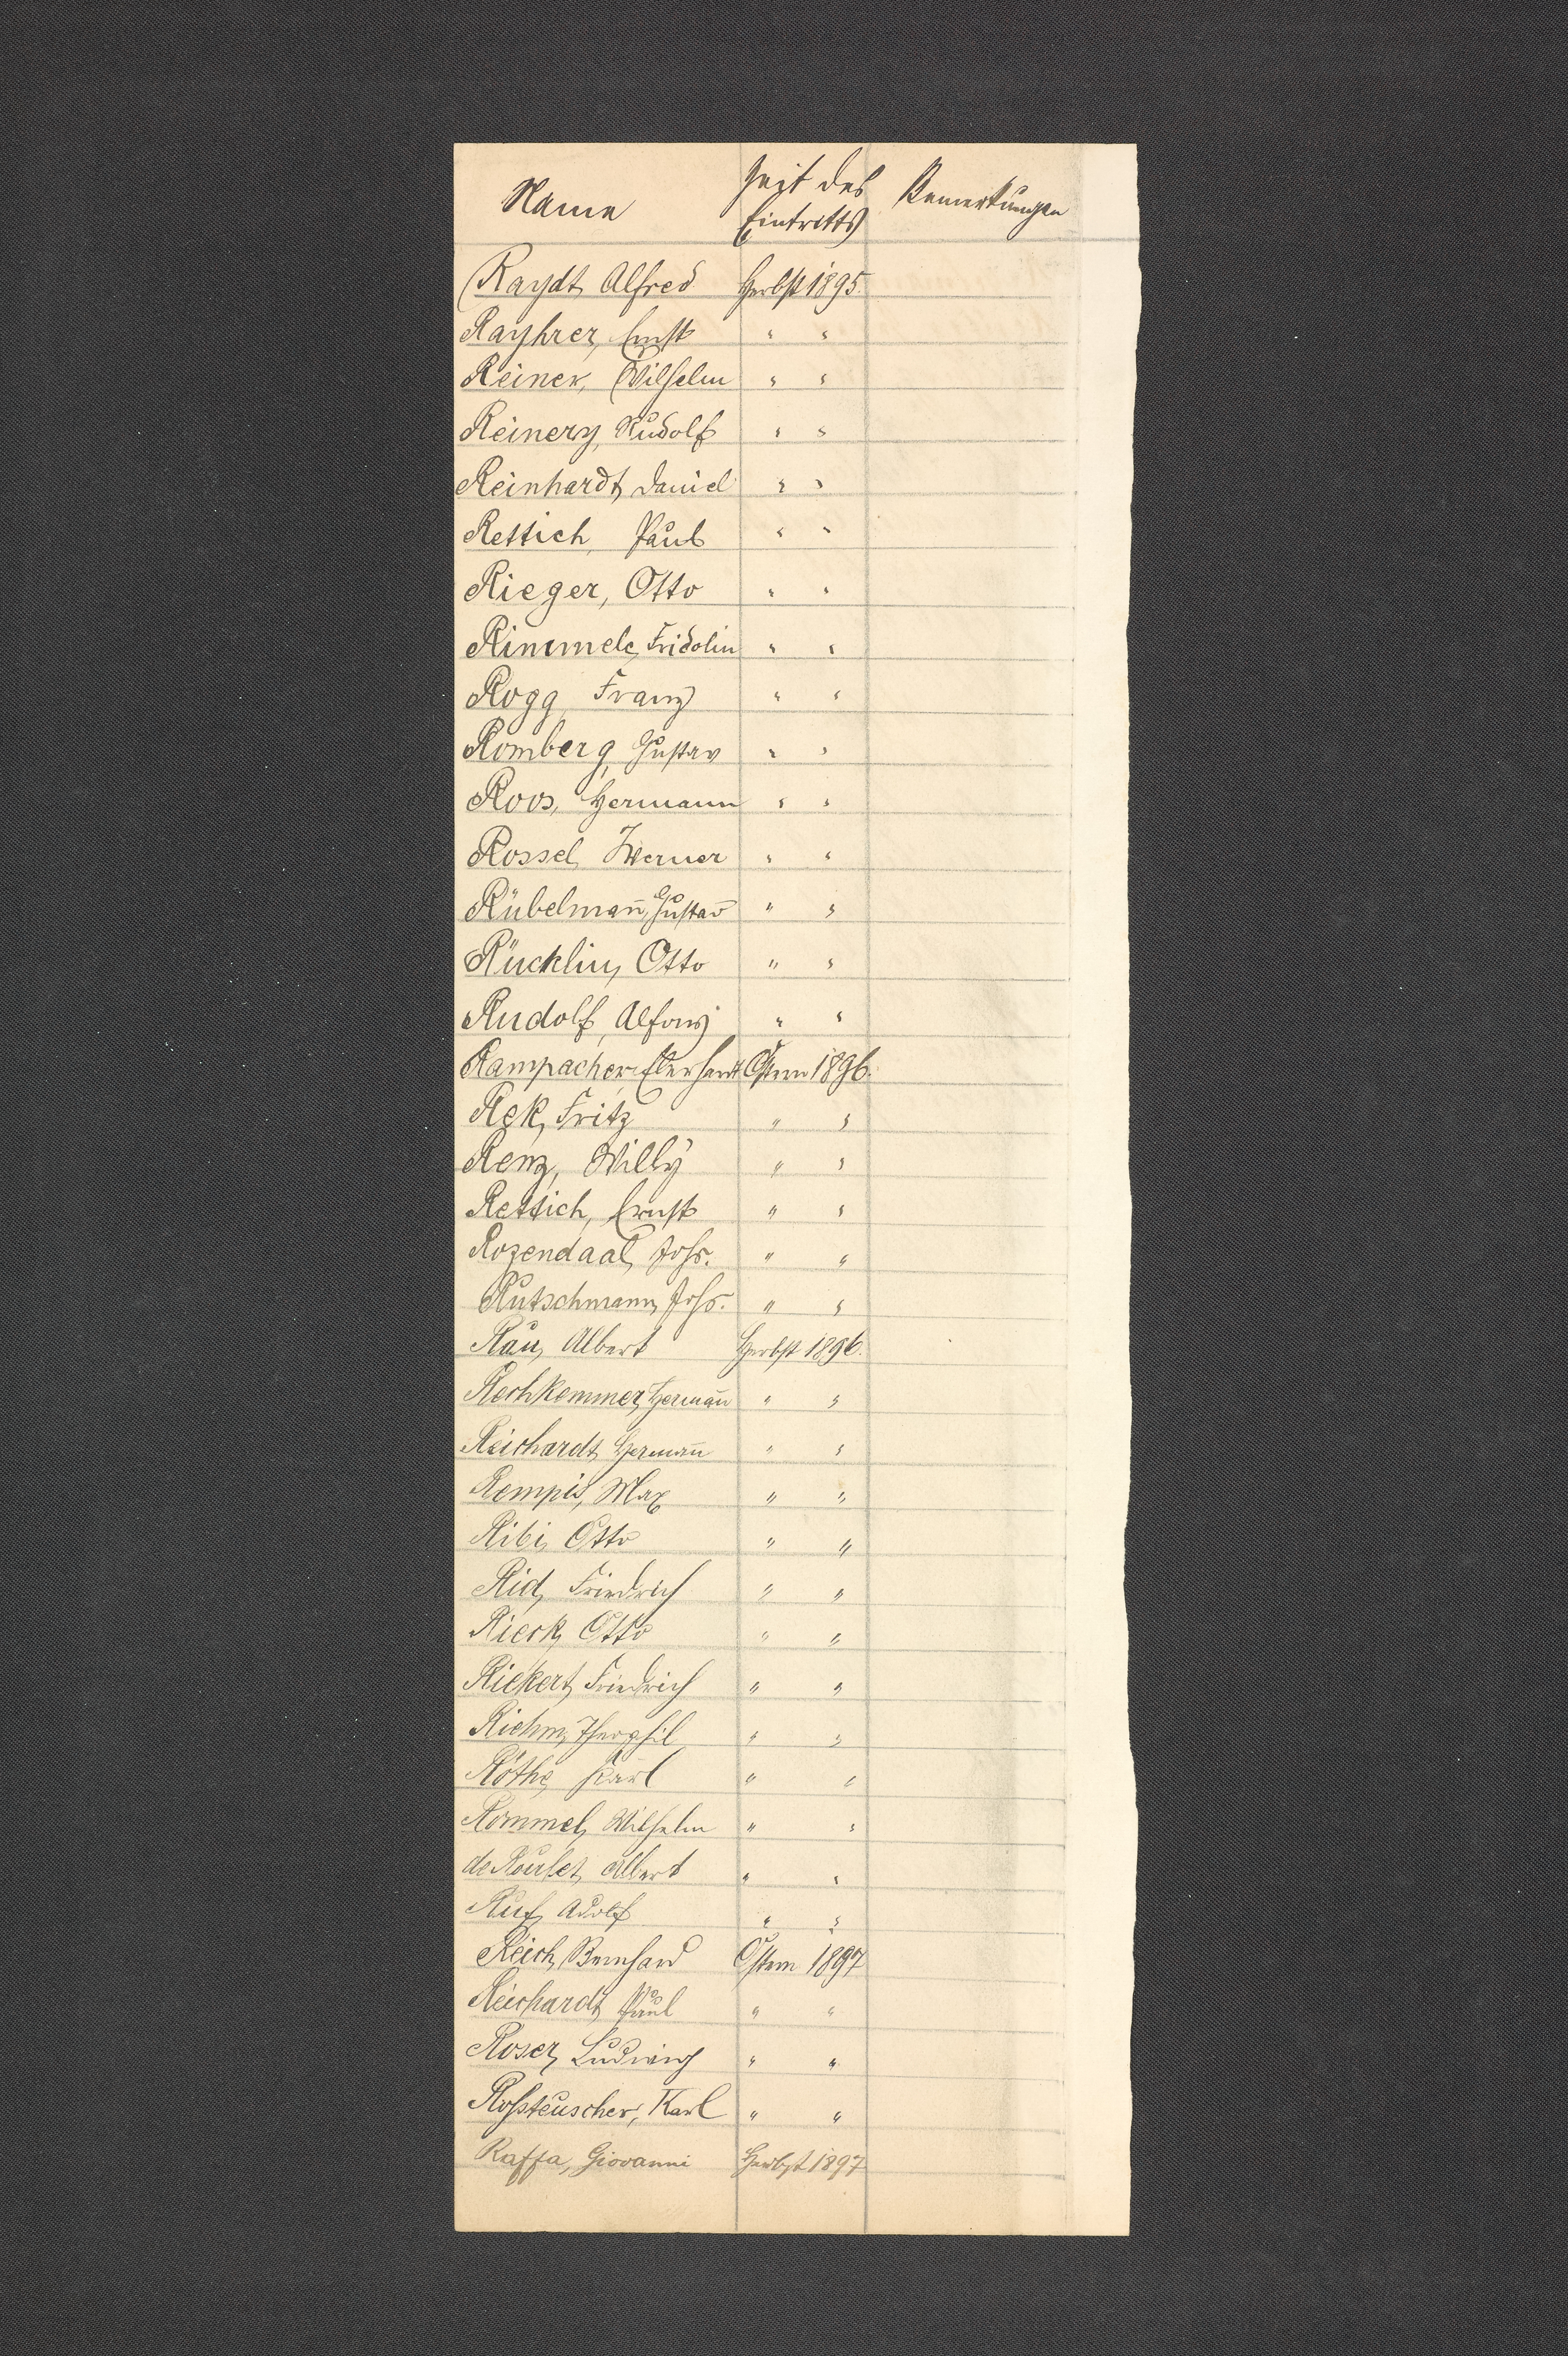 Name Zeit des Eintritts Bemerkungen
Raydt, Alfred Herbst 1895.
Rayhrer, Ernst " "
Reiner, Wilhelm " "
Reinery, Rudolf " "
Reinhardt, Daniel " "
Rettich, Paul " "
Rieger, Otto " "
Rimmele, Fridolin " "
Rogg, Franz " "
Romberg, Gustav " "
Roos, Hermann " "
Rossel, Werner " "
Rübelman̄, Gustav " "
Rücklin, Otto " "
Rudolf, Alfons " "
Rampacher, Eberhardt Ostern 1896.
Rek, Fritz " "
Renz, Willy " "
Rettich, Ernst " "
Rozendaal, Johs. " "
Rutschmann, Johs. " "
Rau, Albert Herbst 1896.
Rechkemmer, Herman̄ " "
Reichardt, Herman̄ " "
Rempis, Max " "
Ribi, Otto " "
Rid, Friedrich " "
Rieck, Otto " "
Riekert, Friedrich " "
Riehm, Theophil " "
Röthe, Karl " "
Rommel, Wilhelm " "
de Roulet, Albert " "
Ruf, Adolf " "
Reich, Bernhard Ostern 1897
Reichardt, Paul " "
Roser, Ludwig " "
Roßteuscher, Karl " "
Raffa, Giovanni Herbst 1897